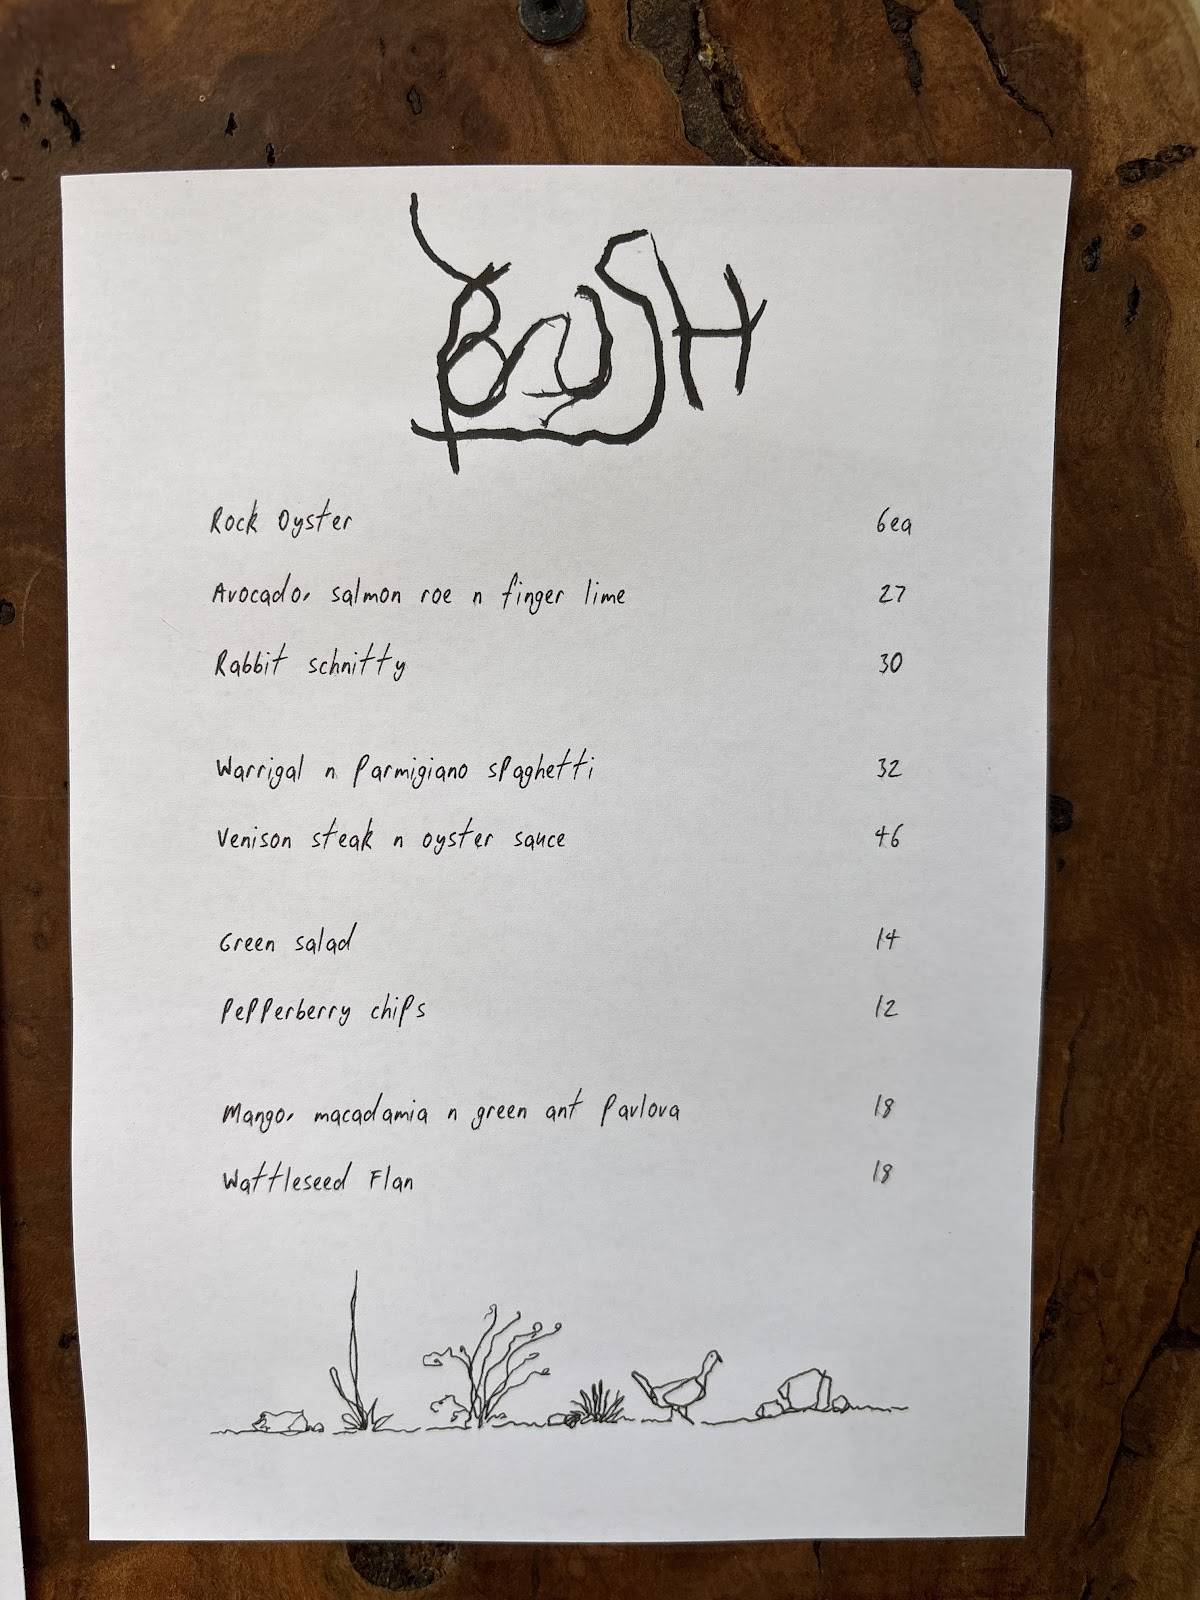 BUSH
Rock Oyster 6ea
Avocado, salmon roe n finger lime 27
Rabbit schnitty 30
Warrigal n Parmigiano spaghetti 32
Venison steak n oyster sauce 46
Green salad 14
Pepperberry chips 12
Mango, macadamia n green ant Pavlova 18
Wattleseed Flan 18